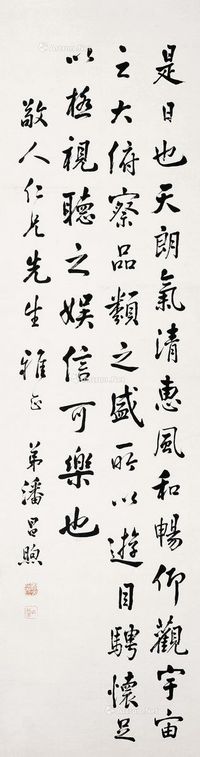 是日也天朗氣清惠風和暢仰觀宇宙
之大俯察品類之盛所以遊目騁懷足
以極視聽之娛信可樂也
敬人仁兄先生雅正 弟潘昌煦